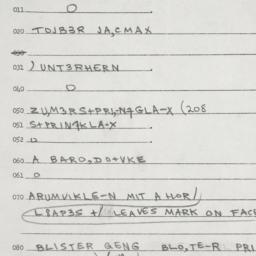 011 O
020 TOJB3R JA,CMAX
031 ) UNT3RHERN
040 O
050 ZU,M3RS+PRI,N4GLA-X (208
051 S+PRIN4KLA-X
052 O
060 A BARO,DO+VKE
061 O
070 ARUMVIKLE-N MIT A HOR/
L8AP3S +/ LEAVES MARK ON FACE
080 BLISTER GENG BLO,TE-R PRI